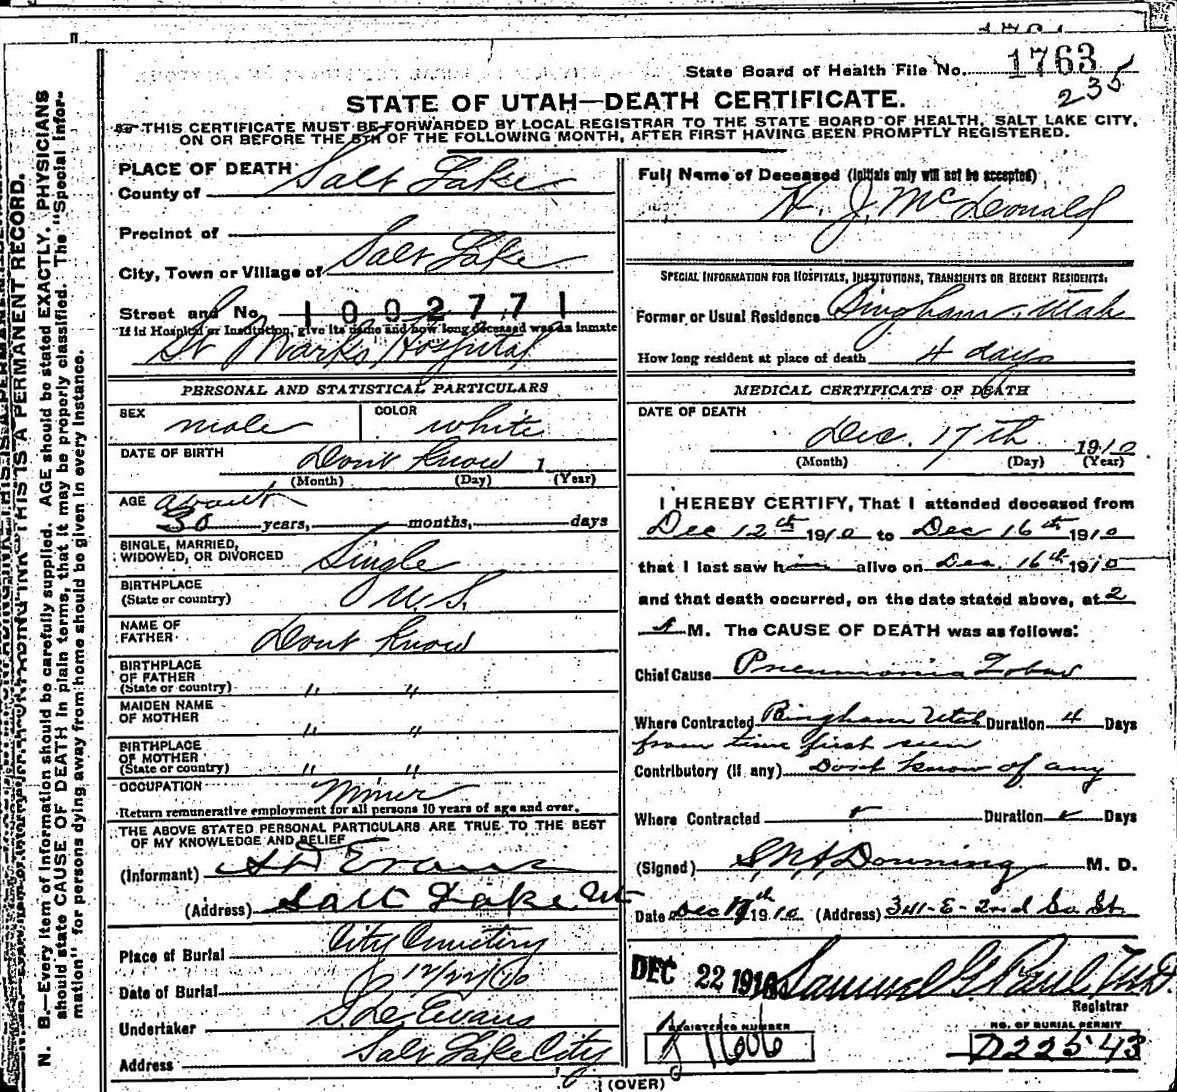 State Board of Health File No. 1763
235
STATE OF UTAH—DEATH CERTIFICATE.
THIS CERTIFICATE MUST BE FORWARDED BY LOCAL REGISTRAR TO THE STATE BOARD OF HEALTH, SALT LAKE CITY,
ON OR BEFORE THE 5TH OF THE FOLLOWING MONTH, AFTER FIRST HAVING BEEN PROMPTLY REGISTERED.
PLACE OF DEATH
County of Salt Lake
Precinct of
City, Town or Village of Salt Lake
Street and No. 1002771
If in Hospital or Institution, give its name and how long deceased was an inmate
St Marks Hospital
PERSONAL AND STATISTICAL PARTICULARS
SEX male COLOR white
DATE OF BIRTH Dont Know 1
(Month) (Day) (Year)
AGE about
30 years, months, days
SINGLE, MARRIED,
WIDOWED, OR DIVORCED Single
BIRTHPLACE
(State or country) U.S.
NAME OF
FATHER Dont Know
BIRTHPLACE
OF FATHER
(State or country) " "
MAIDEN NAME
OF MOTHER " "
BIRTHPLACE
OF MOTHER
(State or country) " "
OCCUPATION Miner
Return remunerative employment for all persons 10 years of age and over.
THE ABOVE STATED PERSONAL PARTICULARS ARE TRUE TO THE BEST
OF MY KNOWLEDGE AND BELIEF
(Informant) Evans
(Address) Salt Lake Ut
Place of Burial City Cemetery
Date of Burial 12/22/10
Undertaker Evans
Address Salt Lake City
Full Name of Deceased (Initials only will not be accepted)
H. J. McDonald
SPECIAL INFORMATION FOR HOSPITALS, INSTITUTIONS, TRANSIENTS OR RECENT RESIDENTS:
Former or Usual Residence Bingham, Utah
How long resident at place of death 4 days
MEDICAL CERTIFICATE OF DEATH
DATE OF DEATH
Dec. 17th 1910
(Month) (Day) (Year)
I HEREBY CERTIFY, That I attended deceased from
Dec 12th 1910 to Dec 16th 1910
that I last saw him alive on Dec. 16th 1910
and that death occurred, on the date stated above, at 2
A M. The CAUSE OF DEATH was as follows:
Chief Cause Pneumonia Lobar
Where Contracted Bingham Utah Duration 4 Days
from time first seen
Contributory (if any) Dont know of any
Where Contracted Duration Days
(Signed) Downing M. D.
Date Dec 17th 1910 (Address) 341-E-2nd So. St.
DEC 22 1910 Samuel G. Paul, M.D.
Registrar
REGISTERED NUMBER
NO. OF BURIAL PERMIT
D22543
(OVER)
N. B.—Every item of information should be carefully supplied. AGE should be stated EXACTLY. PHYSICIANS
should state CAUSE OF DEATH in plain terms, that it may be properly classified. The "Special Infor-
mation" for persons dying away from home should be given in every instance.
THIS IS A PERMANENT RECORD.